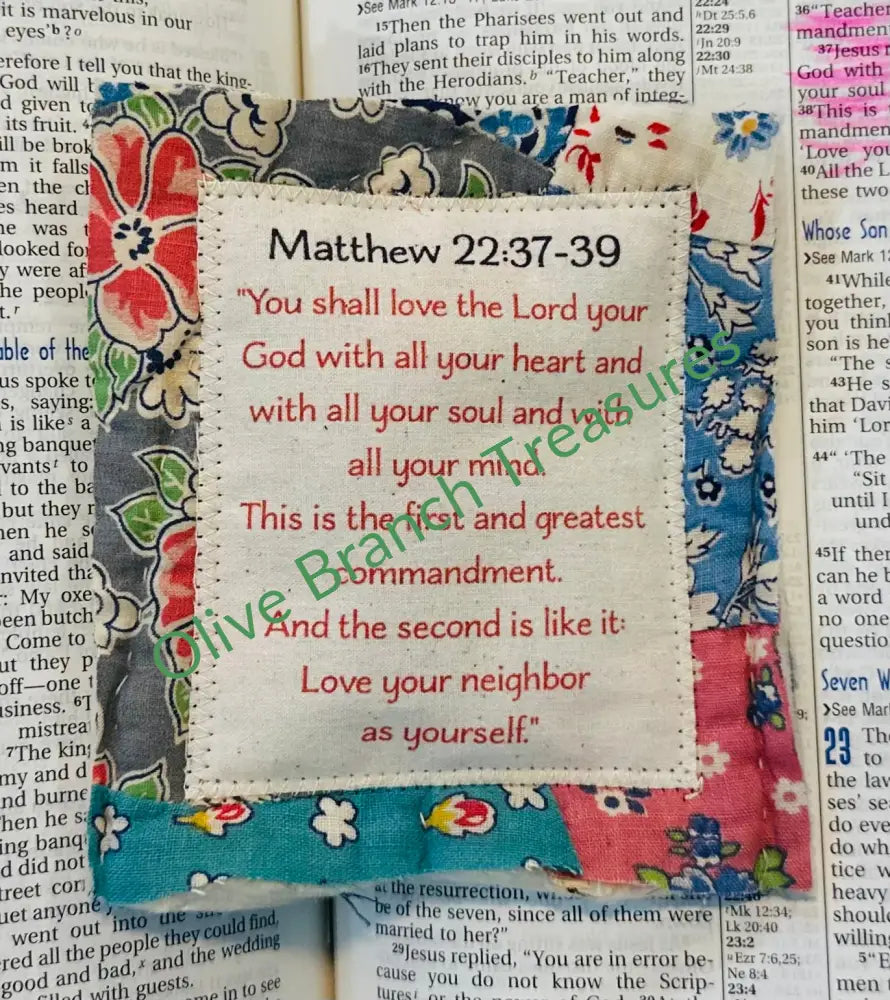 it is marvelous in our
eyes'b?o
erefore I tell you that the king-
God will
d given to
its fruit.
ill be brok
m it falls
en the ch
es heard
he was
looked for
y were af
he people
t.r
able of the
us spoke t
s, saying:
l is likes a
ng banque
rvantst to
to the ba
but they r
hen he se
and said
nvited tha
: My oxe
een butch
Come to
ut they p
off—one t
usiness. 6T
mistrea
7The king
my and d
nd burne
hen he sa
ing banqu
d did not
treet cor
uet anyone
went out into the
red all the people they could find,
good and bad,x and the wedding
filled with guests.
me in to see
›See Mark 12:13
15Then the Pharisees went out and
laid plans to trap him in his words.
16They sent their disciples to him along
with the Herodians.b "Teacher," they
know you are a man of integ-
Matthew 22:37-39
"You shall love the Lord your
God with all your heart and
with all your soul and with
all your mind.
This is the first and greatest
commandment.
And the second is like it:
Love your neighbor
as yourself."
Olive Branch Treasures
at the resurrection,
be of the seven, since all of them were
married to her?"
29Jesus replied, "You are in error be-
cause you do not know the Scrip-
tures or the power of God.
22:24
Dt 25:5,6
22:29
Jn 20:9
22:30
Mt 24:38
9;
Mk 12:34;
Lk 20:40
23:2
Ezr 7:6,25;
Ne 8:4
23:4
36"Teacher
mandment
37Jesus r
God with
your soul
38This is
mandmen
'Love you
40All the L
these two
Whose Son
›See Mark 12
41While
together,
you think
son is he
"The s
43He s
that Davi
him 'Lor
44" 'The
"Sit
until I
und
45If then
can he b
a word
no one
questio
Seven W
›See Mar
23 The
to
the law
ses' se
do eve
do wh
tice w
heavy
should
willing
5"E
men